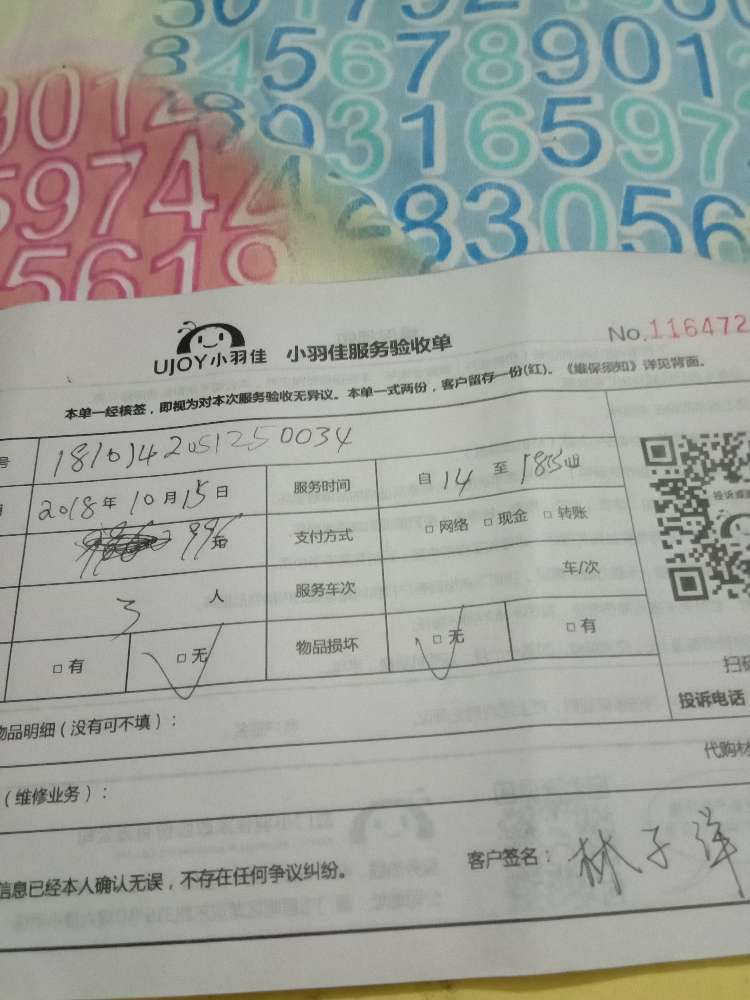 30179230
845678901
3012
0931659 7
59742
28305 6
5619
UJOY小羽佳 小羽佳服务验收单 No.116472
本单一经核签，即视为对本次服务验收无异议。本单一式两份，客户留存一份(红)。《维保须知》详见背面。
号 181014205125 0034
2018年10月15日 服务时间 自 14 至
99 支付方式 □网络 □现金 □转账
3 人 服务车次 车/次
□有 □无 物品损坏 □无 □有
扫码
物品明细（没有可不填）： 投诉电话
代购材
（维修业务）：
信息已经本人确认无误，不存在任何争议纠纷。 客户签名：林子洋